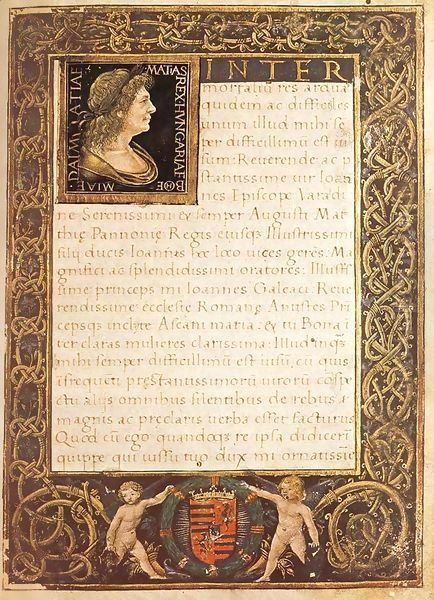 MATIAS REX HVNGARIAE BOE
MIAE DALMATIAE
INTER
mortaliū res ardua
quidem ac difficiles
unum illud mihi se
per difficillimū est ui
sum: Reuerende ac p
stantissime uir Ioan
nes Episcope Varadi
ne Serenissimi & semper Augusti Mat
thię Pannonię Regis eiusq; Illustrissimi
filij ducis Ioannis hoc loco uices geres: Ma
gnifici ac splendidissimi oratores: Illustris
sime princeps mi Ioannes Galeaci Reue
rendissime ecclesię Romanę Antistes Pri
cepsq; inclyte Ascani maria: & tu Bona i
ter claras mulieres clarissima: Illud inq;
mihi semper difficillimū est uisū, cū quis
i frequeti pręstantissimorū uirorū cōspe
ctu alijs omnibus silentibus de rebus
magnis ac preclaris uerba esset facturus
Quod cū ego quandoq; re ipsa didiceri
quippe qui iussu tuo dux mi ornatissie